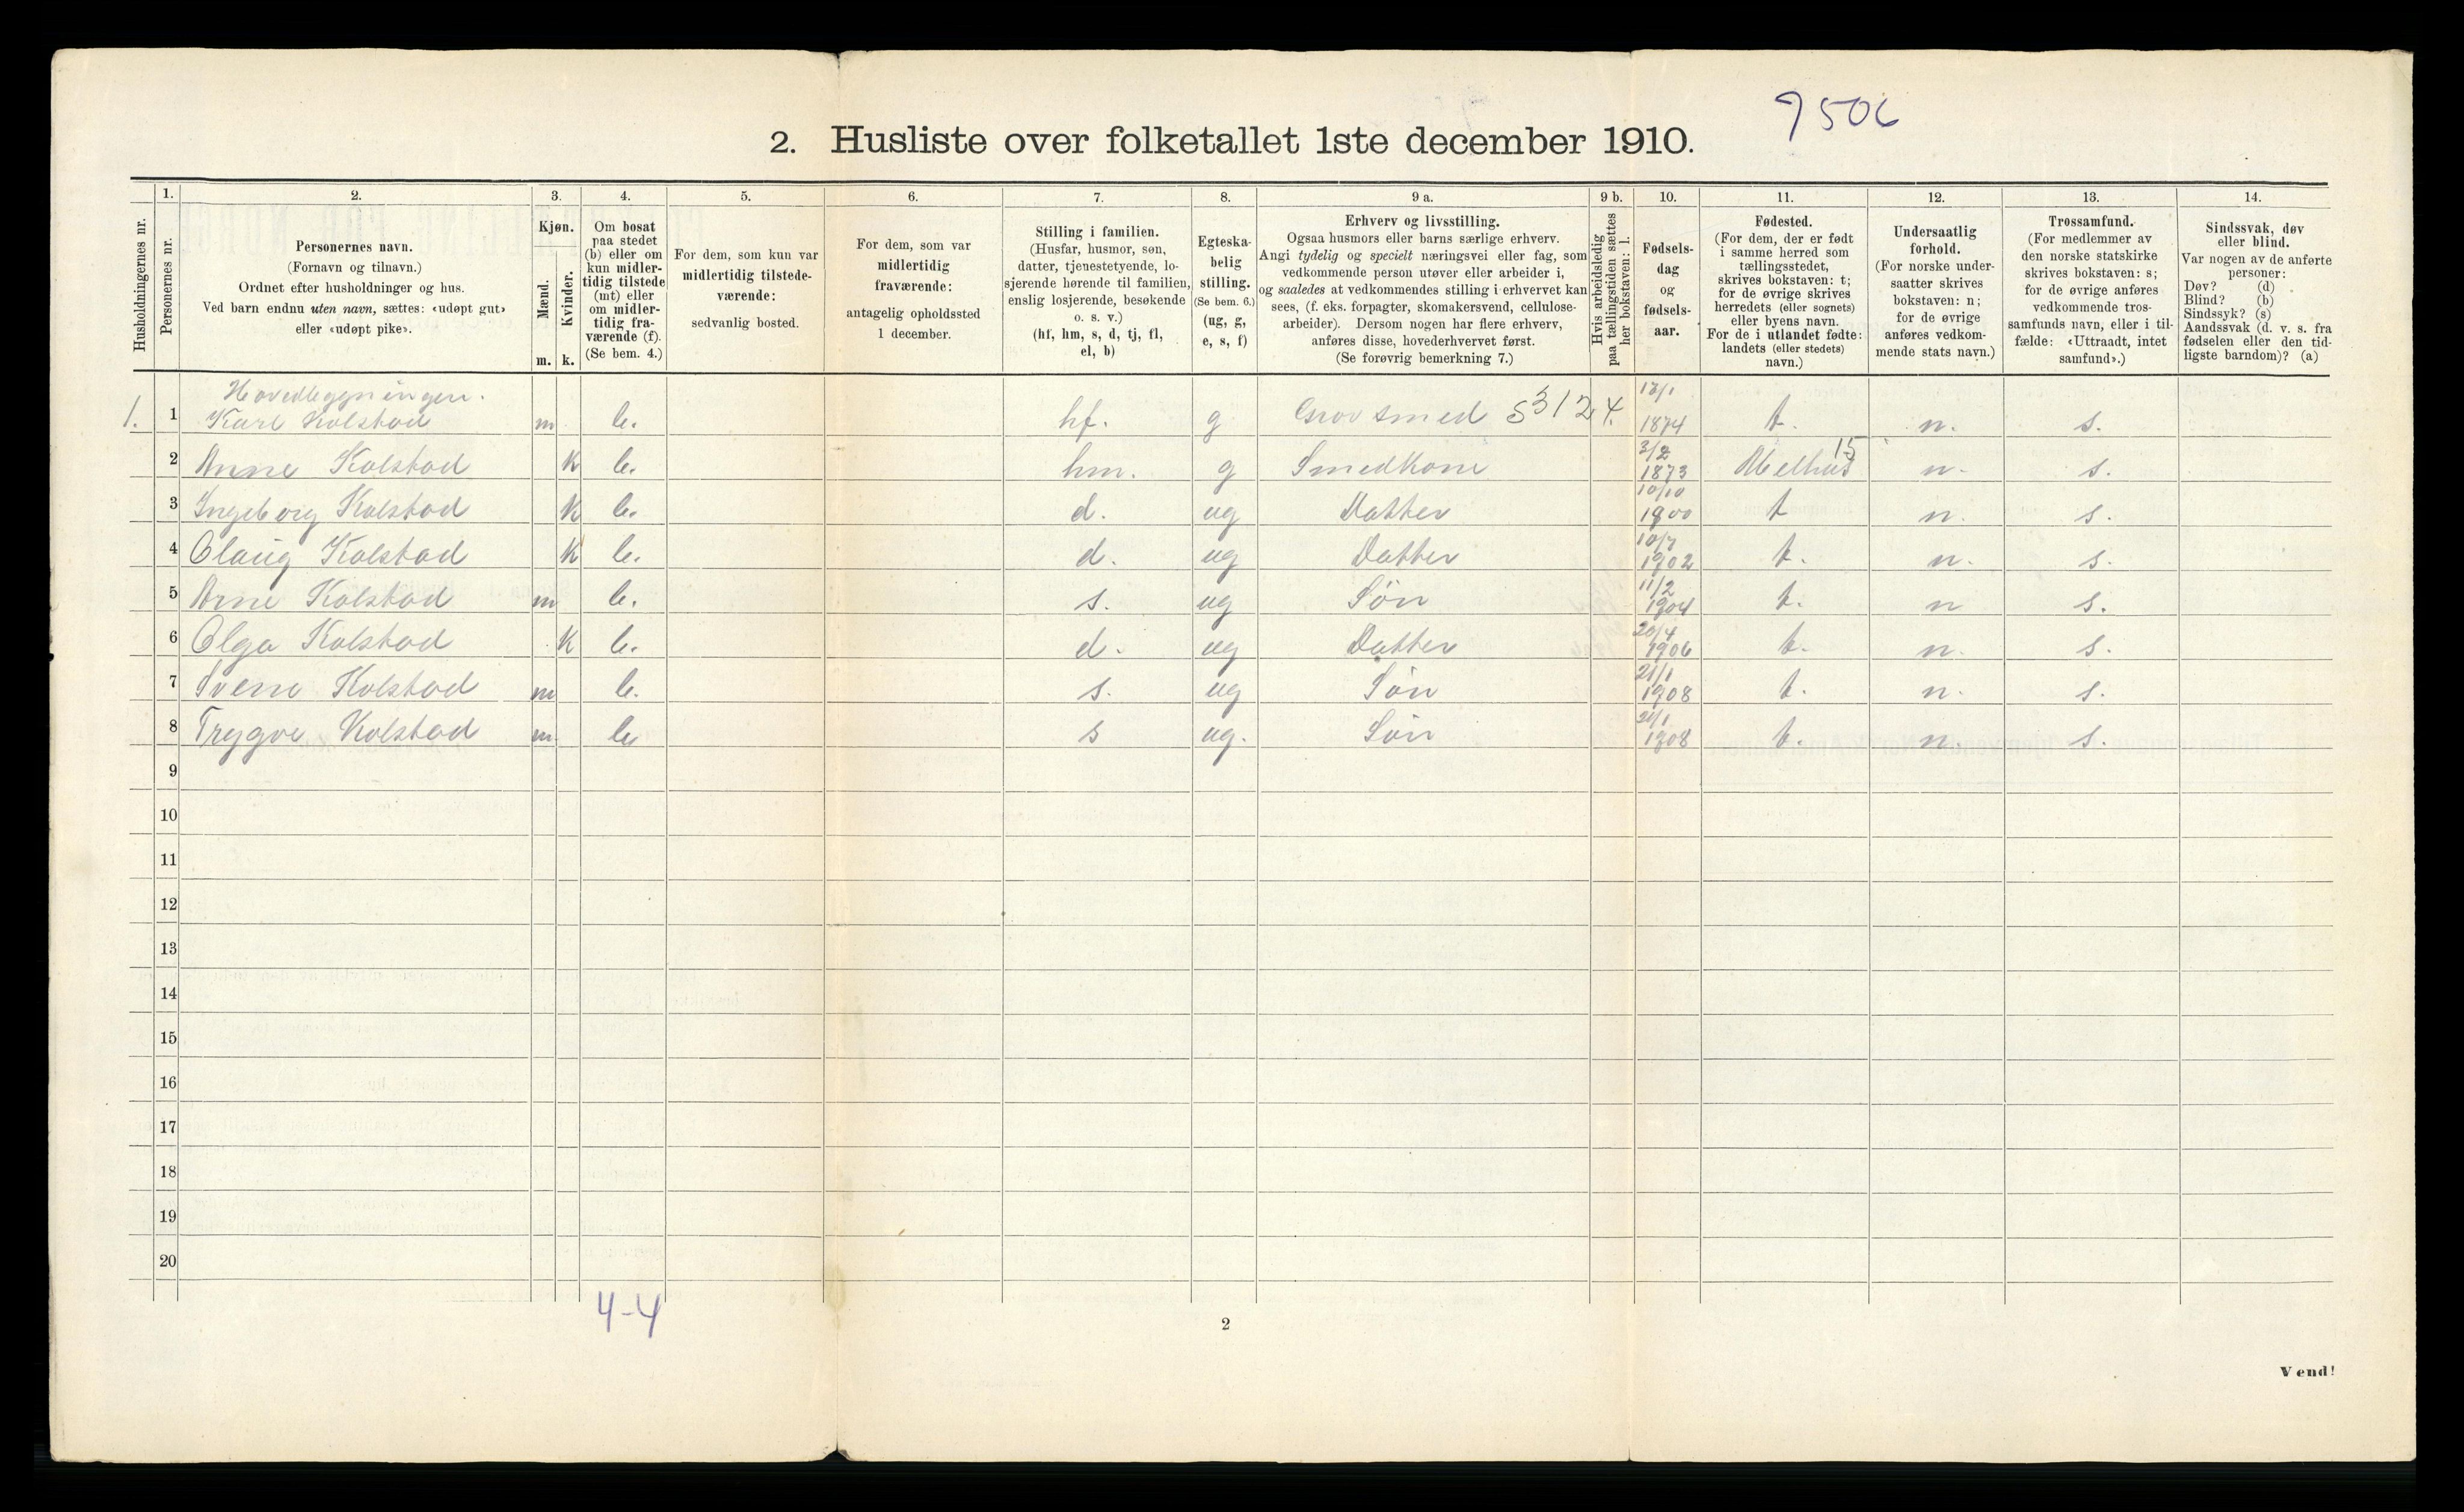 9506
2. Husliste over folketallet 1ste december 1910.
Husholdningernes nr.
1.
Personernes nr.
2.
Personernes navn.
(Fornavn og tilnavn.)
Ordnet efter husholdninger og hus.
Ved barn endnu uten navn, sættes: «udøpt gut»
eller «udøpt pike».
3.
Kjøn.
Mænd.
Kvinder.
m. k.
4.
Om bosat
paa stedet
(b) eller om
kun midler-
tidig tilstede
(mt) eller
om midler-
tidig fra-
værende (f).
(Se bem. 4.)
5.
For dem, som kun var
midlertidig tilstede-
værende:
sedvanlig bosted.
6.
For dem, som var
midlertidig
fraværende:
antagelig opholdssted
1 december.
7.
Stilling i familien.
(Husfar, husmor, søn,
datter, tjenestetyende, lo-
sjerende hørende til familien,
enslig losjerende, besøkende
o. s. v.)
(hf, hm, s, d, tj, fl,
el, b)
8.
Egteska-
belig
stilling.
(Se bem. 6.)
(ug, g,
e, s, f)
9 a.
Erhverv og livsstilling.
Ogsaa husmors eller barns særlige erhverv.
Angi tydelig og specielt næringsvei eller fag, som
vedkommende person utøver eller arbeider i,
og saaledes at vedkommendes stilling i erhvervet kan
sees, (f. eks. forpagter, skomakersvend, cellulose-
arbeider). Dersom nogen har flere erhverv,
anføres disse, hovederhvervet først.
(Se forøvrig bemerkning 7.)
9 b.
Hvis arbeidsledig
paa tællingstiden sættes
her bokstaven: l.
10.
Fødsels-
dag
og
fødsels-
aar.
11.
Fødested.
(For dem, der er født
i samme herred som
tællingsstedet,
skrives bokstaven: t;
for de øvrige skrives
herredets (eller sognets)
eller byens navn.
For de i utlandet fødte:
landets (eller stedets)
navn.)
12.
Undersaatlig
forhold.
(For norske under-
saatter skrives
bokstaven: n;
for de øvrige
anføres vedkom-
mende stats navn.)
13.
Trossamfund.
(For medlemmer av
den norske statskirke
skrives bokstaven: s;
for de øvrige anføres
vedkommende tros-
samfunds navn, eller i til-
fælde: «Uttraadt, intet
samfund».)
14.
Sindssvak, døv
eller blind.
Var nogen av de anførte
personer:
Døv? (d)
Blind? (b)
Sindssyk? (s)
Aandssvak (d. v. s. fra
fødselen eller den tid-
ligste barndom)? (a)
Hovedbygningen.
1. 1 Karl Kolstad m b. hf. g Grovsmed 53124. 1874 t. n. s.
2 Anne Kolstad k b. hm. g Smedkone 3/2 1873 Melhus 15 n. s.
3 Ingeborg Kolstad k b. d. ug Datter 10/10 1900 t n. s.
4 Olaug Kolstad k b. d. ug Datter 10/7 1902 t. n. s.
5 Arne Kolstad m b. s. ug Søn 11/2 1904 t. n s.
6 Olga Kolstad k b. d. ug Datter 20/4 1906 t. n. s.
7 Sverre Kolstad m b. s. ug Søn 21/1 1908 t. n. s.
8 Trygve Kolstad m b s ug. Søn 21/1 1908 t. n. s.
9
10
11
12
13
14
15
16
17
18
19
20
4-4
2
Vend!